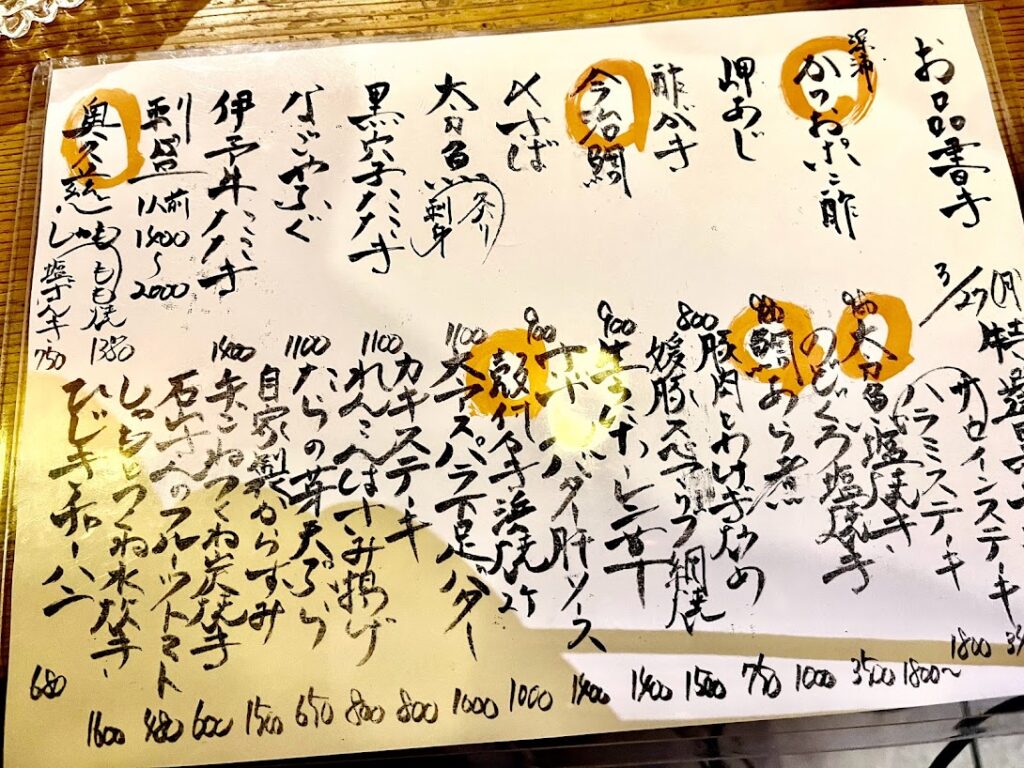 お品書き
3/27(月)
深浦
かつおぽん酢
980
岬あじ
980
酢ガキ
800
今治鯛
900
〆さば
900
太刀魚 炙り 刺身
1100
黒穴子たたき
1100
なごやふぐ
1100
伊予牛たたき
1400
刺盛 1人前 1400〜2000
奥久慈しゃも もも焼 1380
塩ナンキ 750
サーロインステーキ
ハラミステーキ 1800
太刀魚塩焼き 1800〜
のどぐろ塩焼き 3500
鯛あら煮 1000
豚肉とわけぎ炒め 750
媛豚スペアリブ網焼 1500
1400
バター肝ソース 1400
殻付 浜焼 2ケ 1000
太アスパラ下足バター 1000
カキステーキ 800
れんこんはさみ揚げ 800
たらの芽天ぷら 650
自家製からすみ 1500
手ごねつくね炭焼き 600
石山さんのフルーツトマト 480
しゃもとつくね水炊き 1600
ひじきチャーハン 680